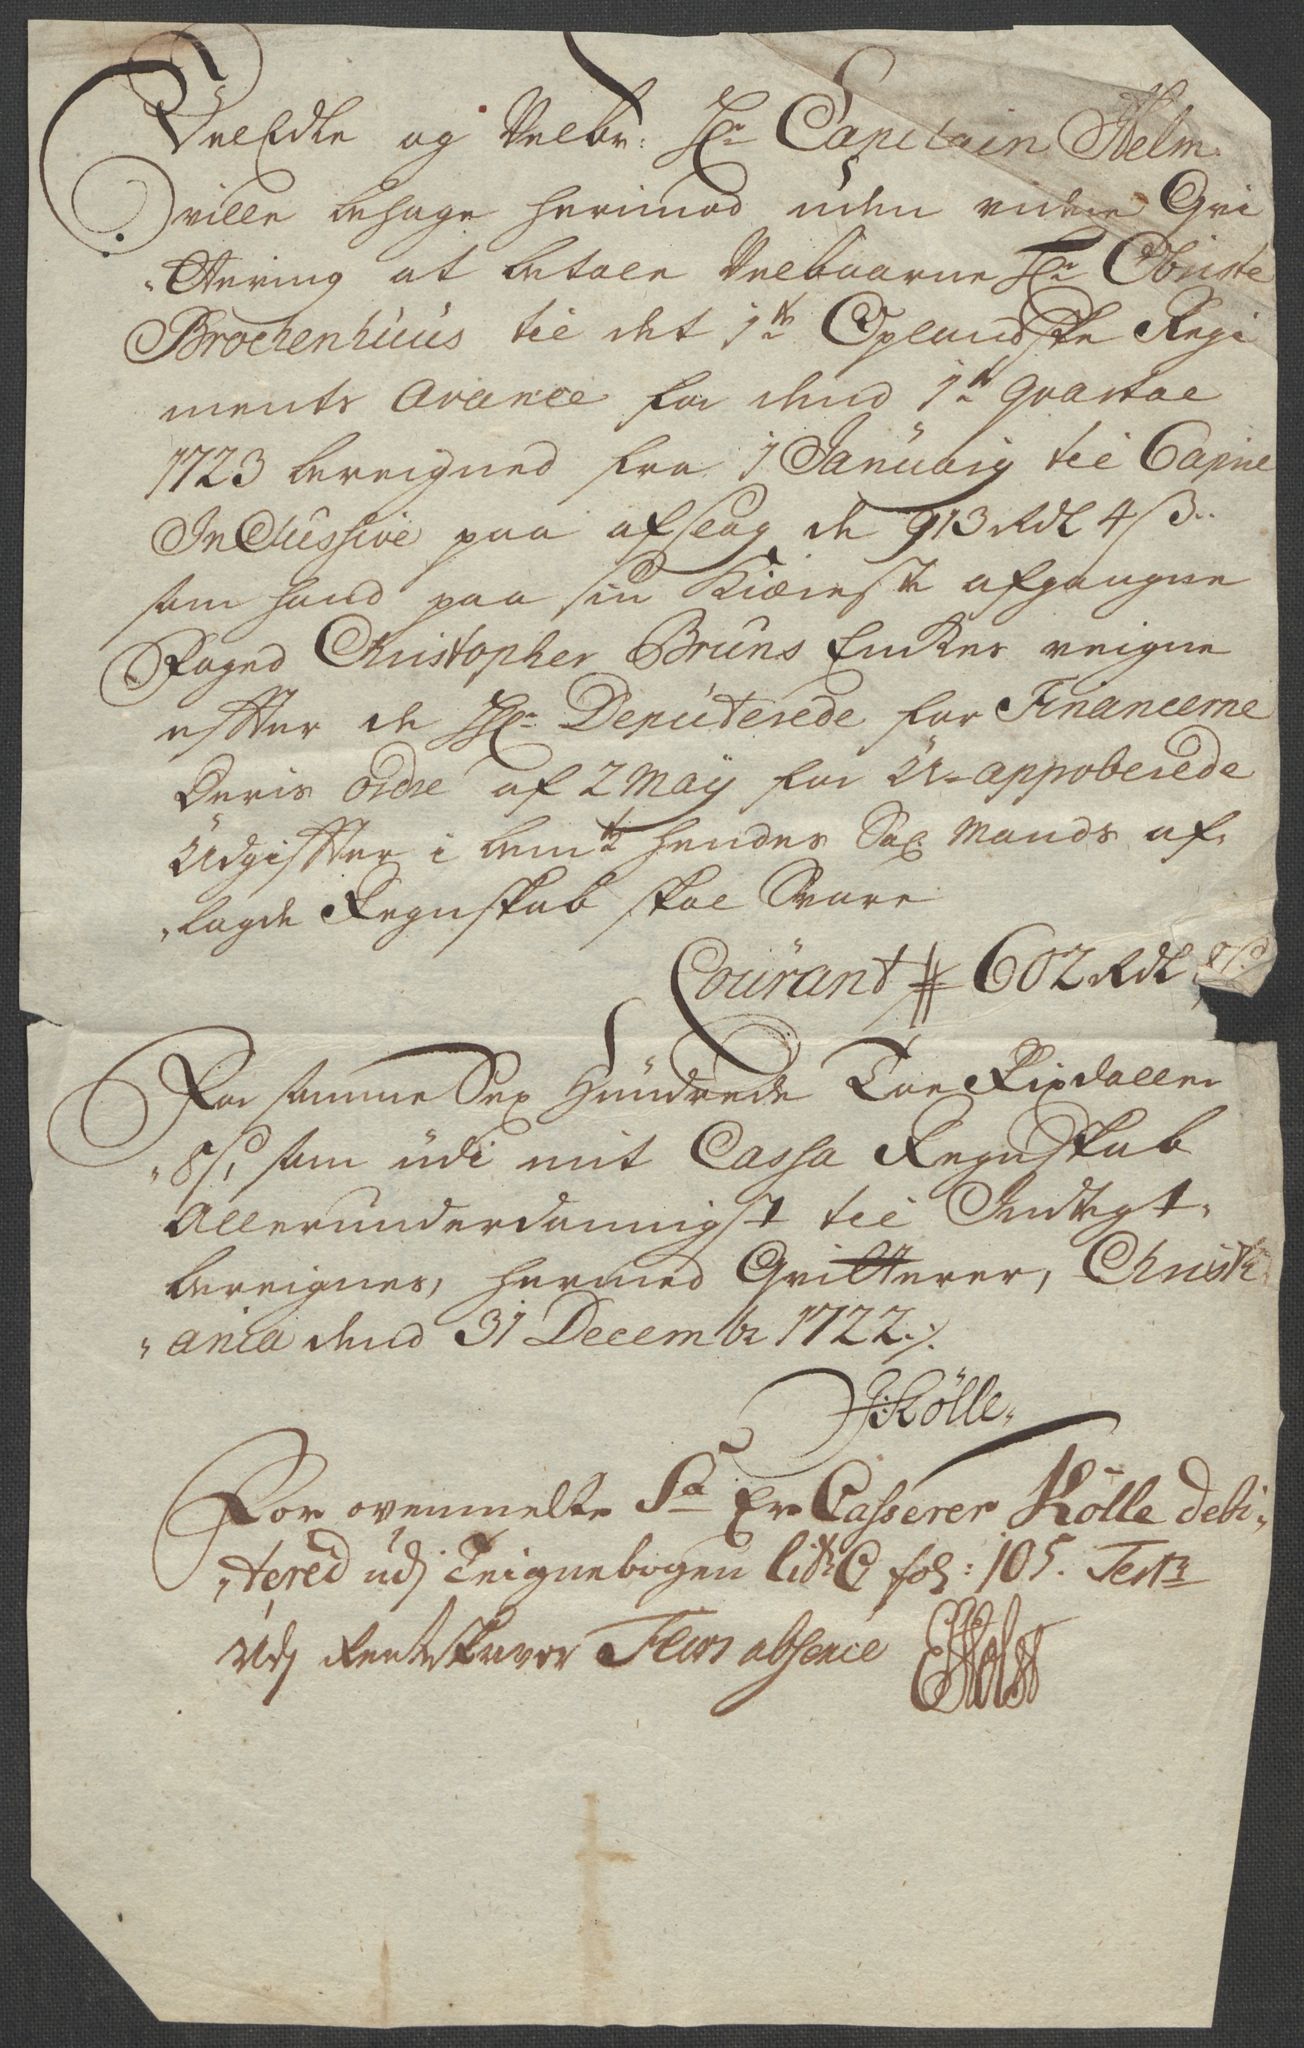 VelEdle og Velbr: Hr Capitain Helm
ville behage herimod uden videre Qvi
-ttering at betale Velbaarne Hr Obriste
Brochenhuus til det 1te Oplandske Regi
ments Avance for dend 1te Qvartal
1723 bereigned fra 1 Januarij til Caprile
Inclussive paa afslag de 913 Rdl 4 ß..
som hand paa sin Kiæreste afgangne
Foged Christopher Bruns Enckes veigne
efftter de Hr Deputerede for Financerne
Deris ordre af 2 May for U-approberede
Udgiftter i bemte hendes Sal: Mands af„
„lagde Regnskab skal Svare
Courant # 602 Rdl
For samme Sex Hundrede Toe Rixdaller
„ som udi mit Cassa Regnskab
Allerunderdannigst til Indtegt„
bereignes, hermed Qvitterer, Christi
„ania dend 31 Decembr 1722./.
J: Kölle„
For ovenmelte Sa Er Casserer Kölle debi„
„tered udj Teignebogen litr C fol: 105. Test:
Udj Rentskrever Flors absence
EHolst